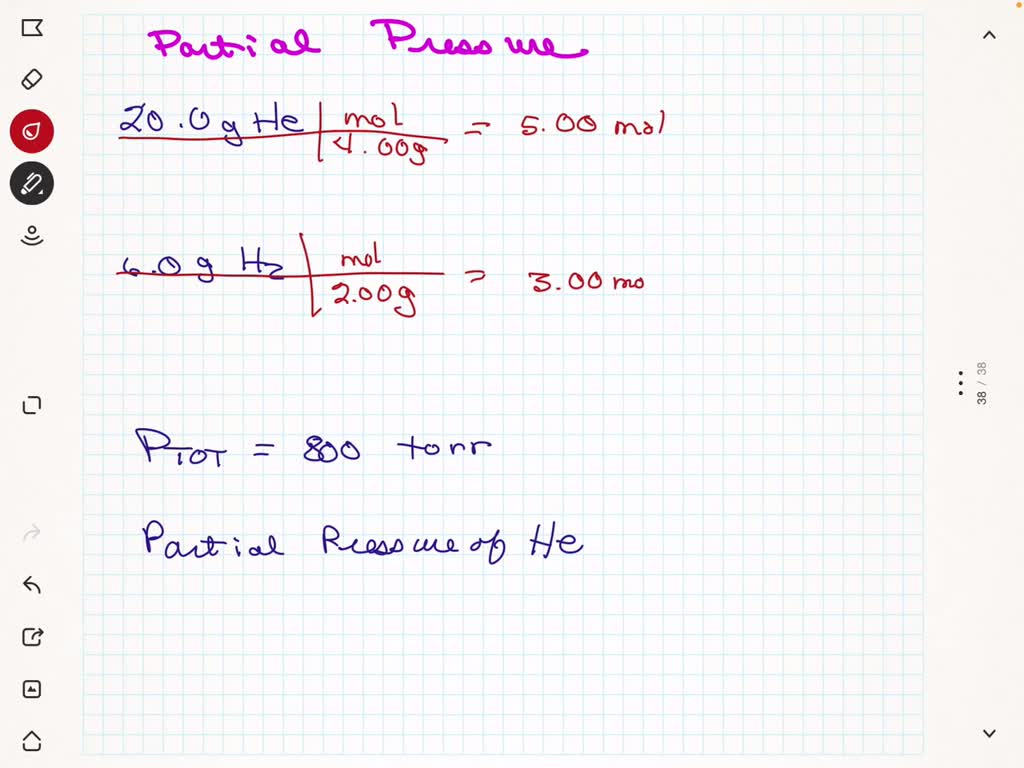 Partial Pressure
20.0g He | mol / 4.00g = 5.00 mol
6.0g H2 | mol / 2.00g = 3.00 mo
PTOT = 800 torr
Partial Pressure of He
38 / 38